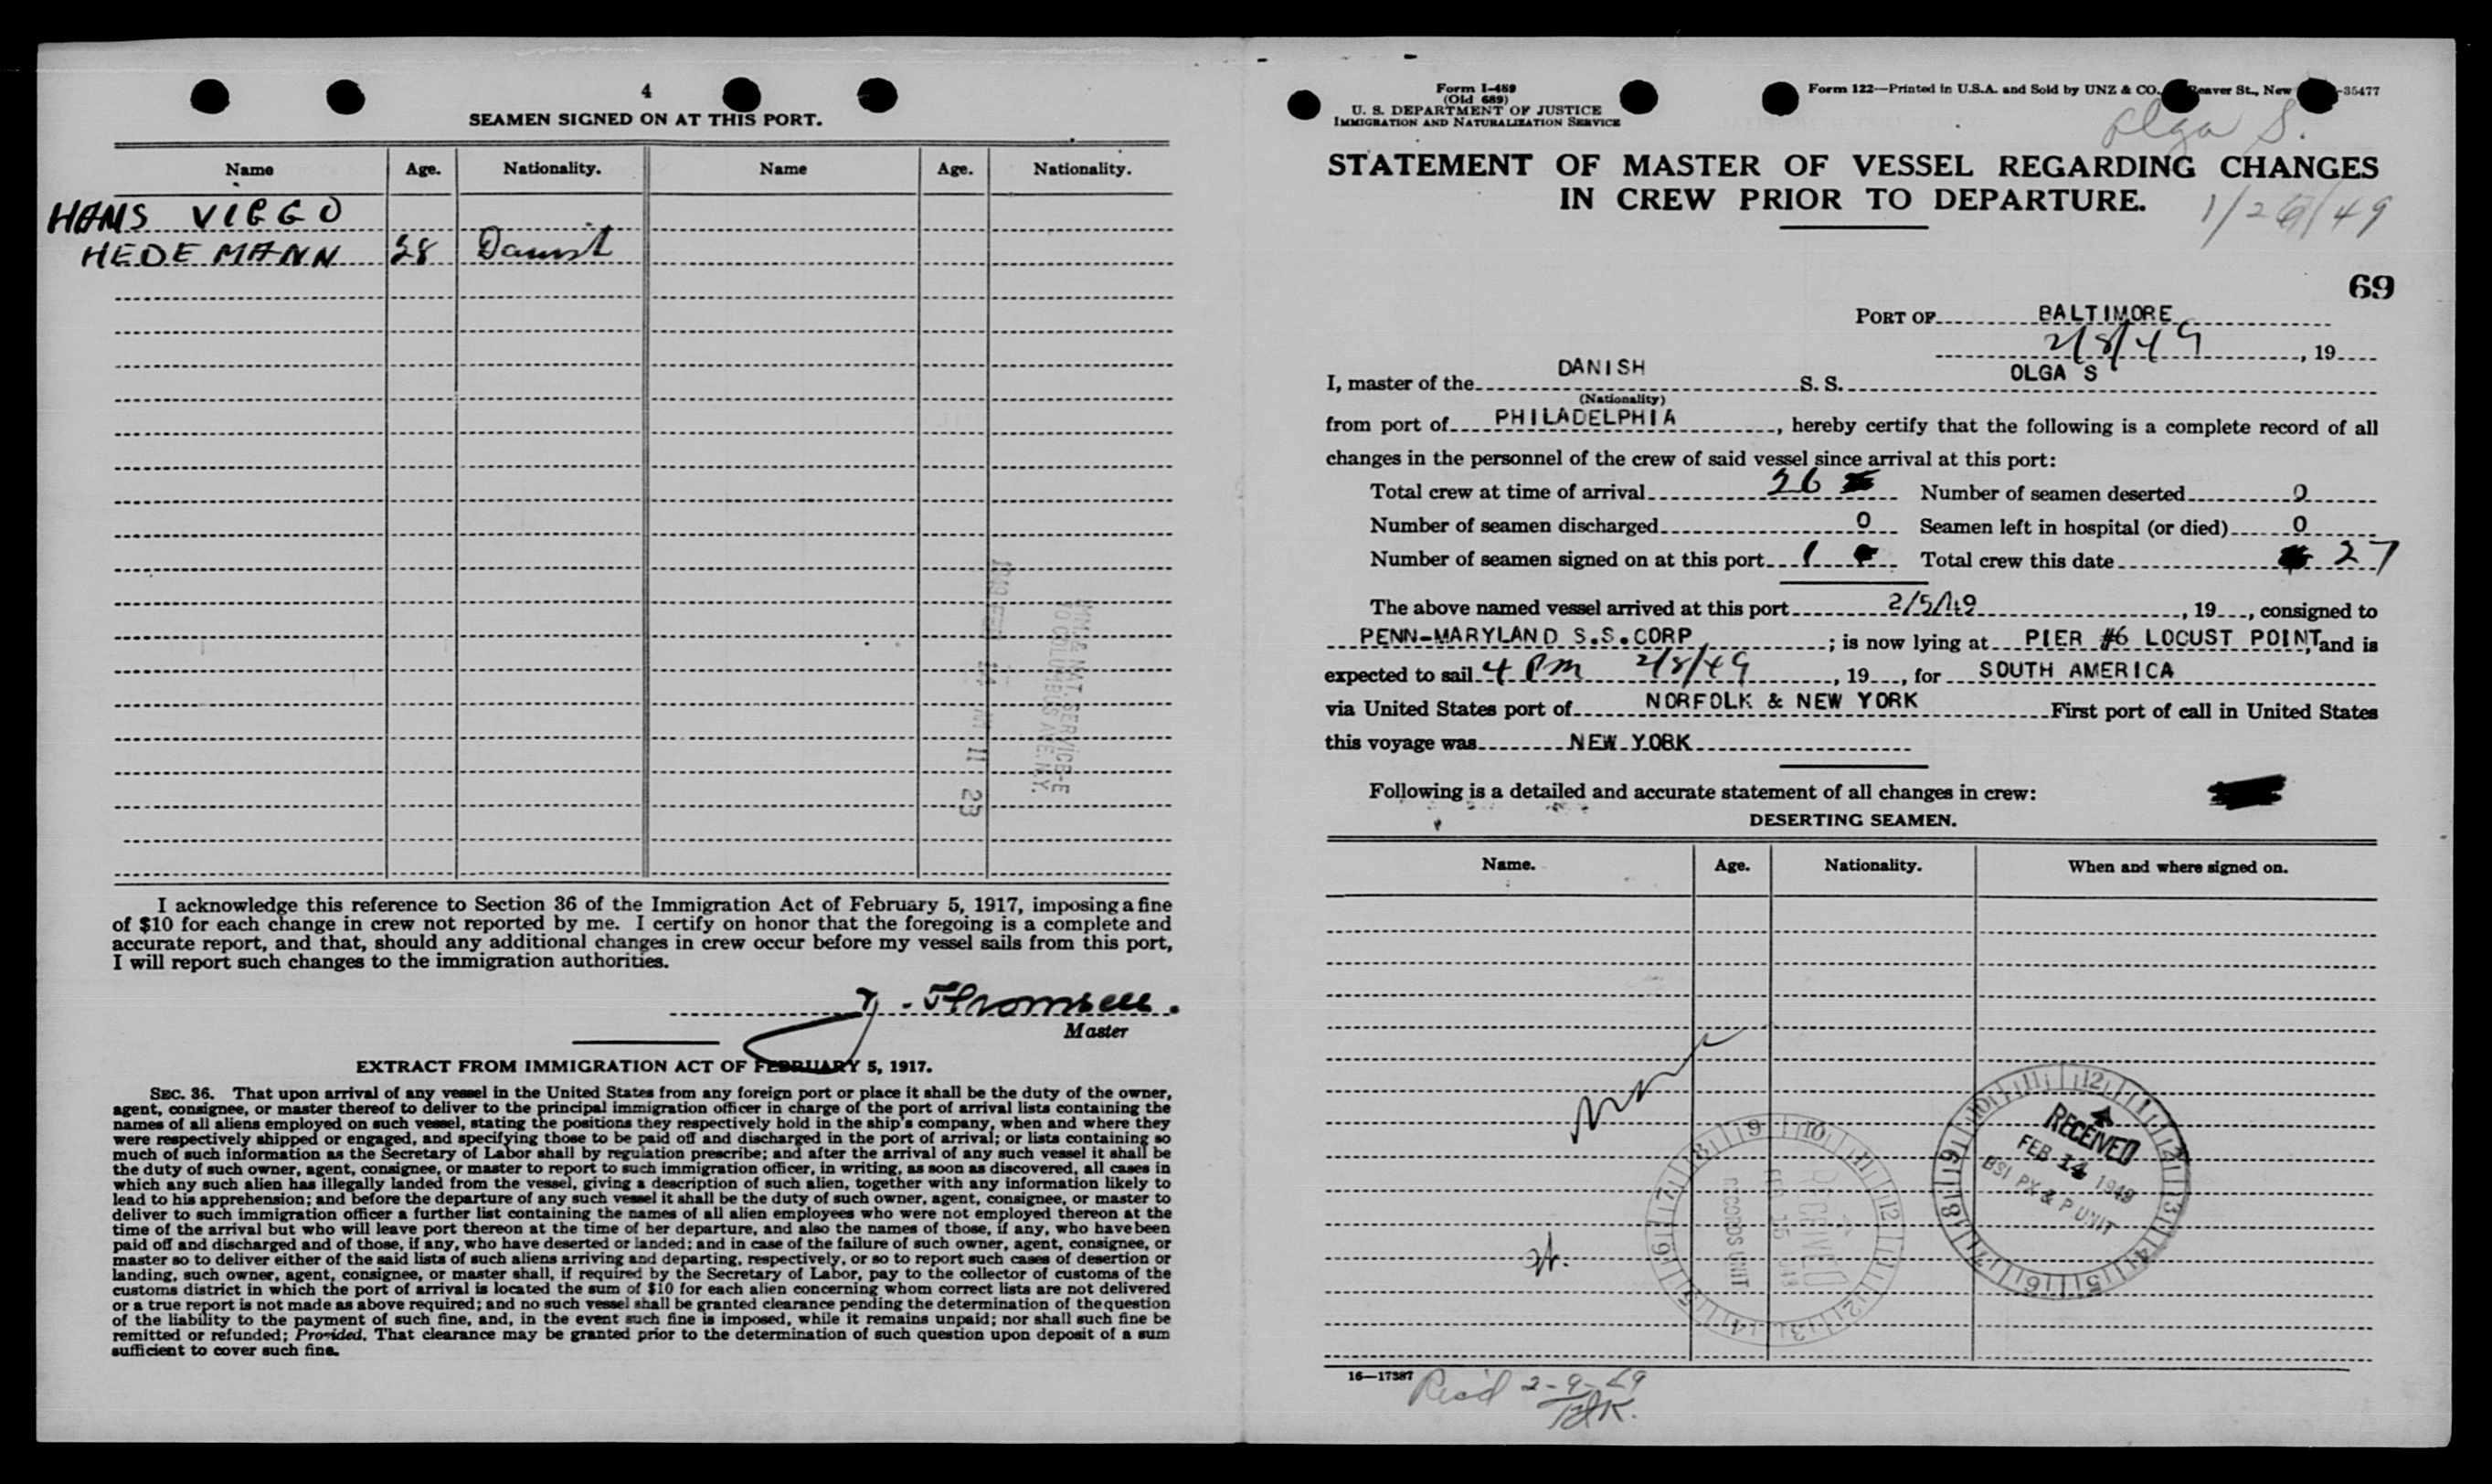 4
SEAMEN SIGNED ON AT THIS PORT.
Name Age. Nationality. Name Age. Nationality.
HANS VIGGO
HEDEMANN 28 Danish
IMM. & NAT. SERVICE-E
70 COLUMBUS AVE N.Y.
11 23
I acknowledge this reference to Section 36 of the Immigration Act of February 5, 1917, imposing a fine
of $10 for each change in crew not reported by me. I certify on honor that the foregoing is a complete and
accurate report, and that, should any additional changes in crew occur before my vessel sails from this port,
I will report such changes to the immigration authorities.
Master
EXTRACT FROM IMMIGRATION ACT OF FEBRUARY 5, 1917.
SEC. 36. That upon arrival of any vessel in the United States from any foreign port or place it shall be the duty of the owner,
agent, consignee, or master thereof to deliver to the principal immigration officer in charge of the port of arrival lists containing the
names of all aliens employed on such vessel, stating the positions they respectively hold in the ship's company, when and where they
were respectively shipped or engaged, and specifying those to be paid off and discharged in the port of arrival; or lists containing so
much of such information as the Secretary of Labor shall by regulation prescribe; and after the arrival of any such vessel it shall be
the duty of such owner, agent, consignee, or master to report to such immigration officer, in writing, as soon as discovered, all cases in
which any such alien has illegally landed from the vessel, giving a description of such alien, together with any information likely to
lead to his apprehension; and before the departure of any such vessel it shall be the duty of such owner, agent, consignee, or master to
deliver to such immigration officer a further list containing the names of all alien employees who were not employed thereon at the
time of the arrival but who will leave port thereon at the time of her departure, and also the names of those, if any, who have been
paid off and discharged and of those, if any, who have deserted or landed; and in case of the failure of such owner, agent, consignee, or
master so to deliver either of the said lists of such aliens arriving and departing, respectively, or so to report such cases of desertion or
landing, such owner, agent, consignee, or master shall, if required by the Secretary of Labor, pay to the collector of customs of the
customs district in which the port of arrival is located the sum of $10 for each alien concerning whom correct lists are not delivered
or a true report is not made as above required; and no such vessel shall be granted clearance pending the determination of the question
of the liability to the payment of such fine, and, in the event such fine is imposed, while it remains unpaid; nor shall such fine be
remitted or refunded; Provided, That clearance may be granted prior to the determination of such question upon deposit of a sum
sufficient to cover such fine.
Form I-489
(Old 689)
U. S. DEPARTMENT OF JUSTICE
IMMIGRATION AND NATURALIZATION SERVICE
Form 122—Printed in U.S.A. and Sold by UNZ & CO. Beaver St., New -35477
Olga S.
STATEMENT OF MASTER OF VESSEL REGARDING CHANGES
IN CREW PRIOR TO DEPARTURE.
1/26/49
69
PORT OF BALTIMORE
2/8/49, 19
I, master of the DANISH S. S. OLGA S
(Nationality)
from port of PHILADELPHIA, hereby certify that the following is a complete record of all
changes in the personnel of the crew of said vessel since arrival at this port:
Total crew at time of arrival 26 Number of seamen deserted 0
Number of seamen discharged 0 Seamen left in hospital (or died) 0
Number of seamen signed on at this port 1 Total crew this date 27
The above named vessel arrived at this port 2/5/49, 19, consigned to
PENN-MARYLAND S.S.CORP; is now lying at PIER #6 LOCUST POINT, and is
expected to sail 4 PM 2/8/49, 19, for SOUTH AMERICA
via United States port of NORFOLK & NEW YORK First port of call in United States
this voyage was NEW YORK
Following is a detailed and accurate statement of all changes in crew:
DESERTING SEAMEN.
Name. Age. Nationality. When and where signed on.
RECEIVED
FEB 14 1949
BSI PX & P UNIT
RECEIVED
FEB 15
RECORDS UNIT
16—17387
Rec'd 2-9-49